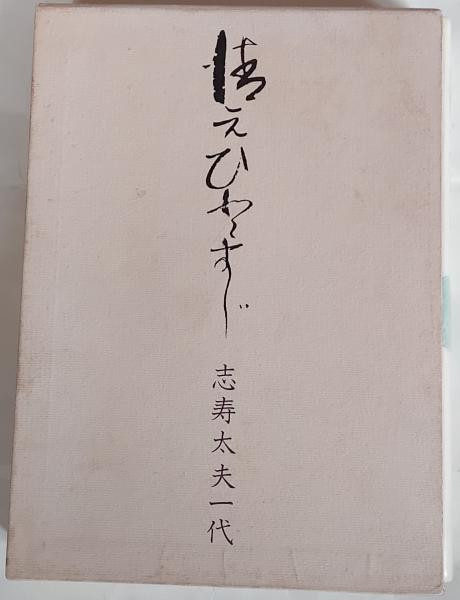 清元ひとすじ
志寿太夫一代